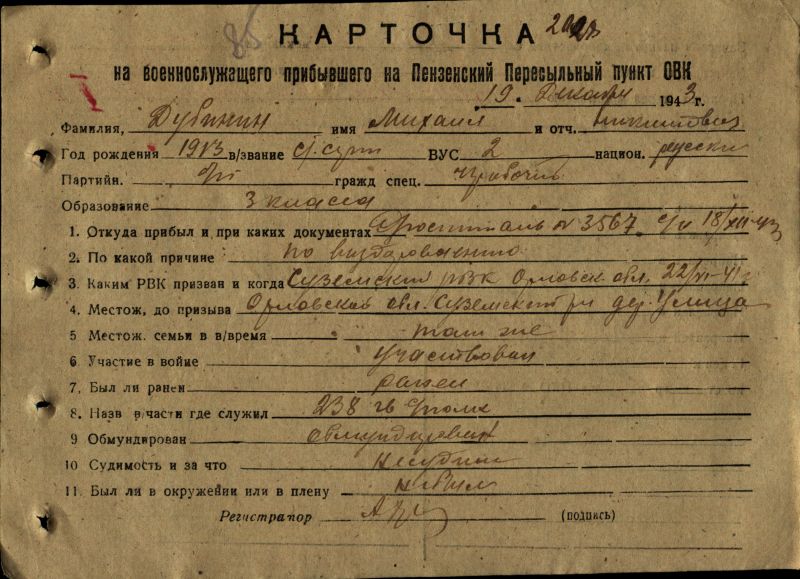 85
КАРТОЧКА
на военнослужащего прибывшего на Пензенский Пересыльный пункт ОВК
19. Декабря 1943 г.
Фамилия, Дубинин имя Михаил и отч. Никитович
Год рождения 1913 в/звание ВУС 2 национ. русский
Партийн. б/п гражд спец.
Образование 3 класса
1. Откуда прибыл и при каких документах Госпиталь № 3567. с/и 18/XII-43
2. По какой причине по выздоровлению
3. Каким РВК призван и когда Суземский рвк Орловск обл. 22/VI-41 г
4. Местож, до призыва Орловская обл. Суземский р-н дер. Улица
5 Местож. семьи в в/время там же
6. Участие в войне участвовал
7. Был ли ранен ранен
8. Назв в/части где служил 238 гв полк
9 Обмундирован обмундирован
10 Судимость и за что несудим
11. Был ли в окружении или в плену не был
Регистрапор (подпись)